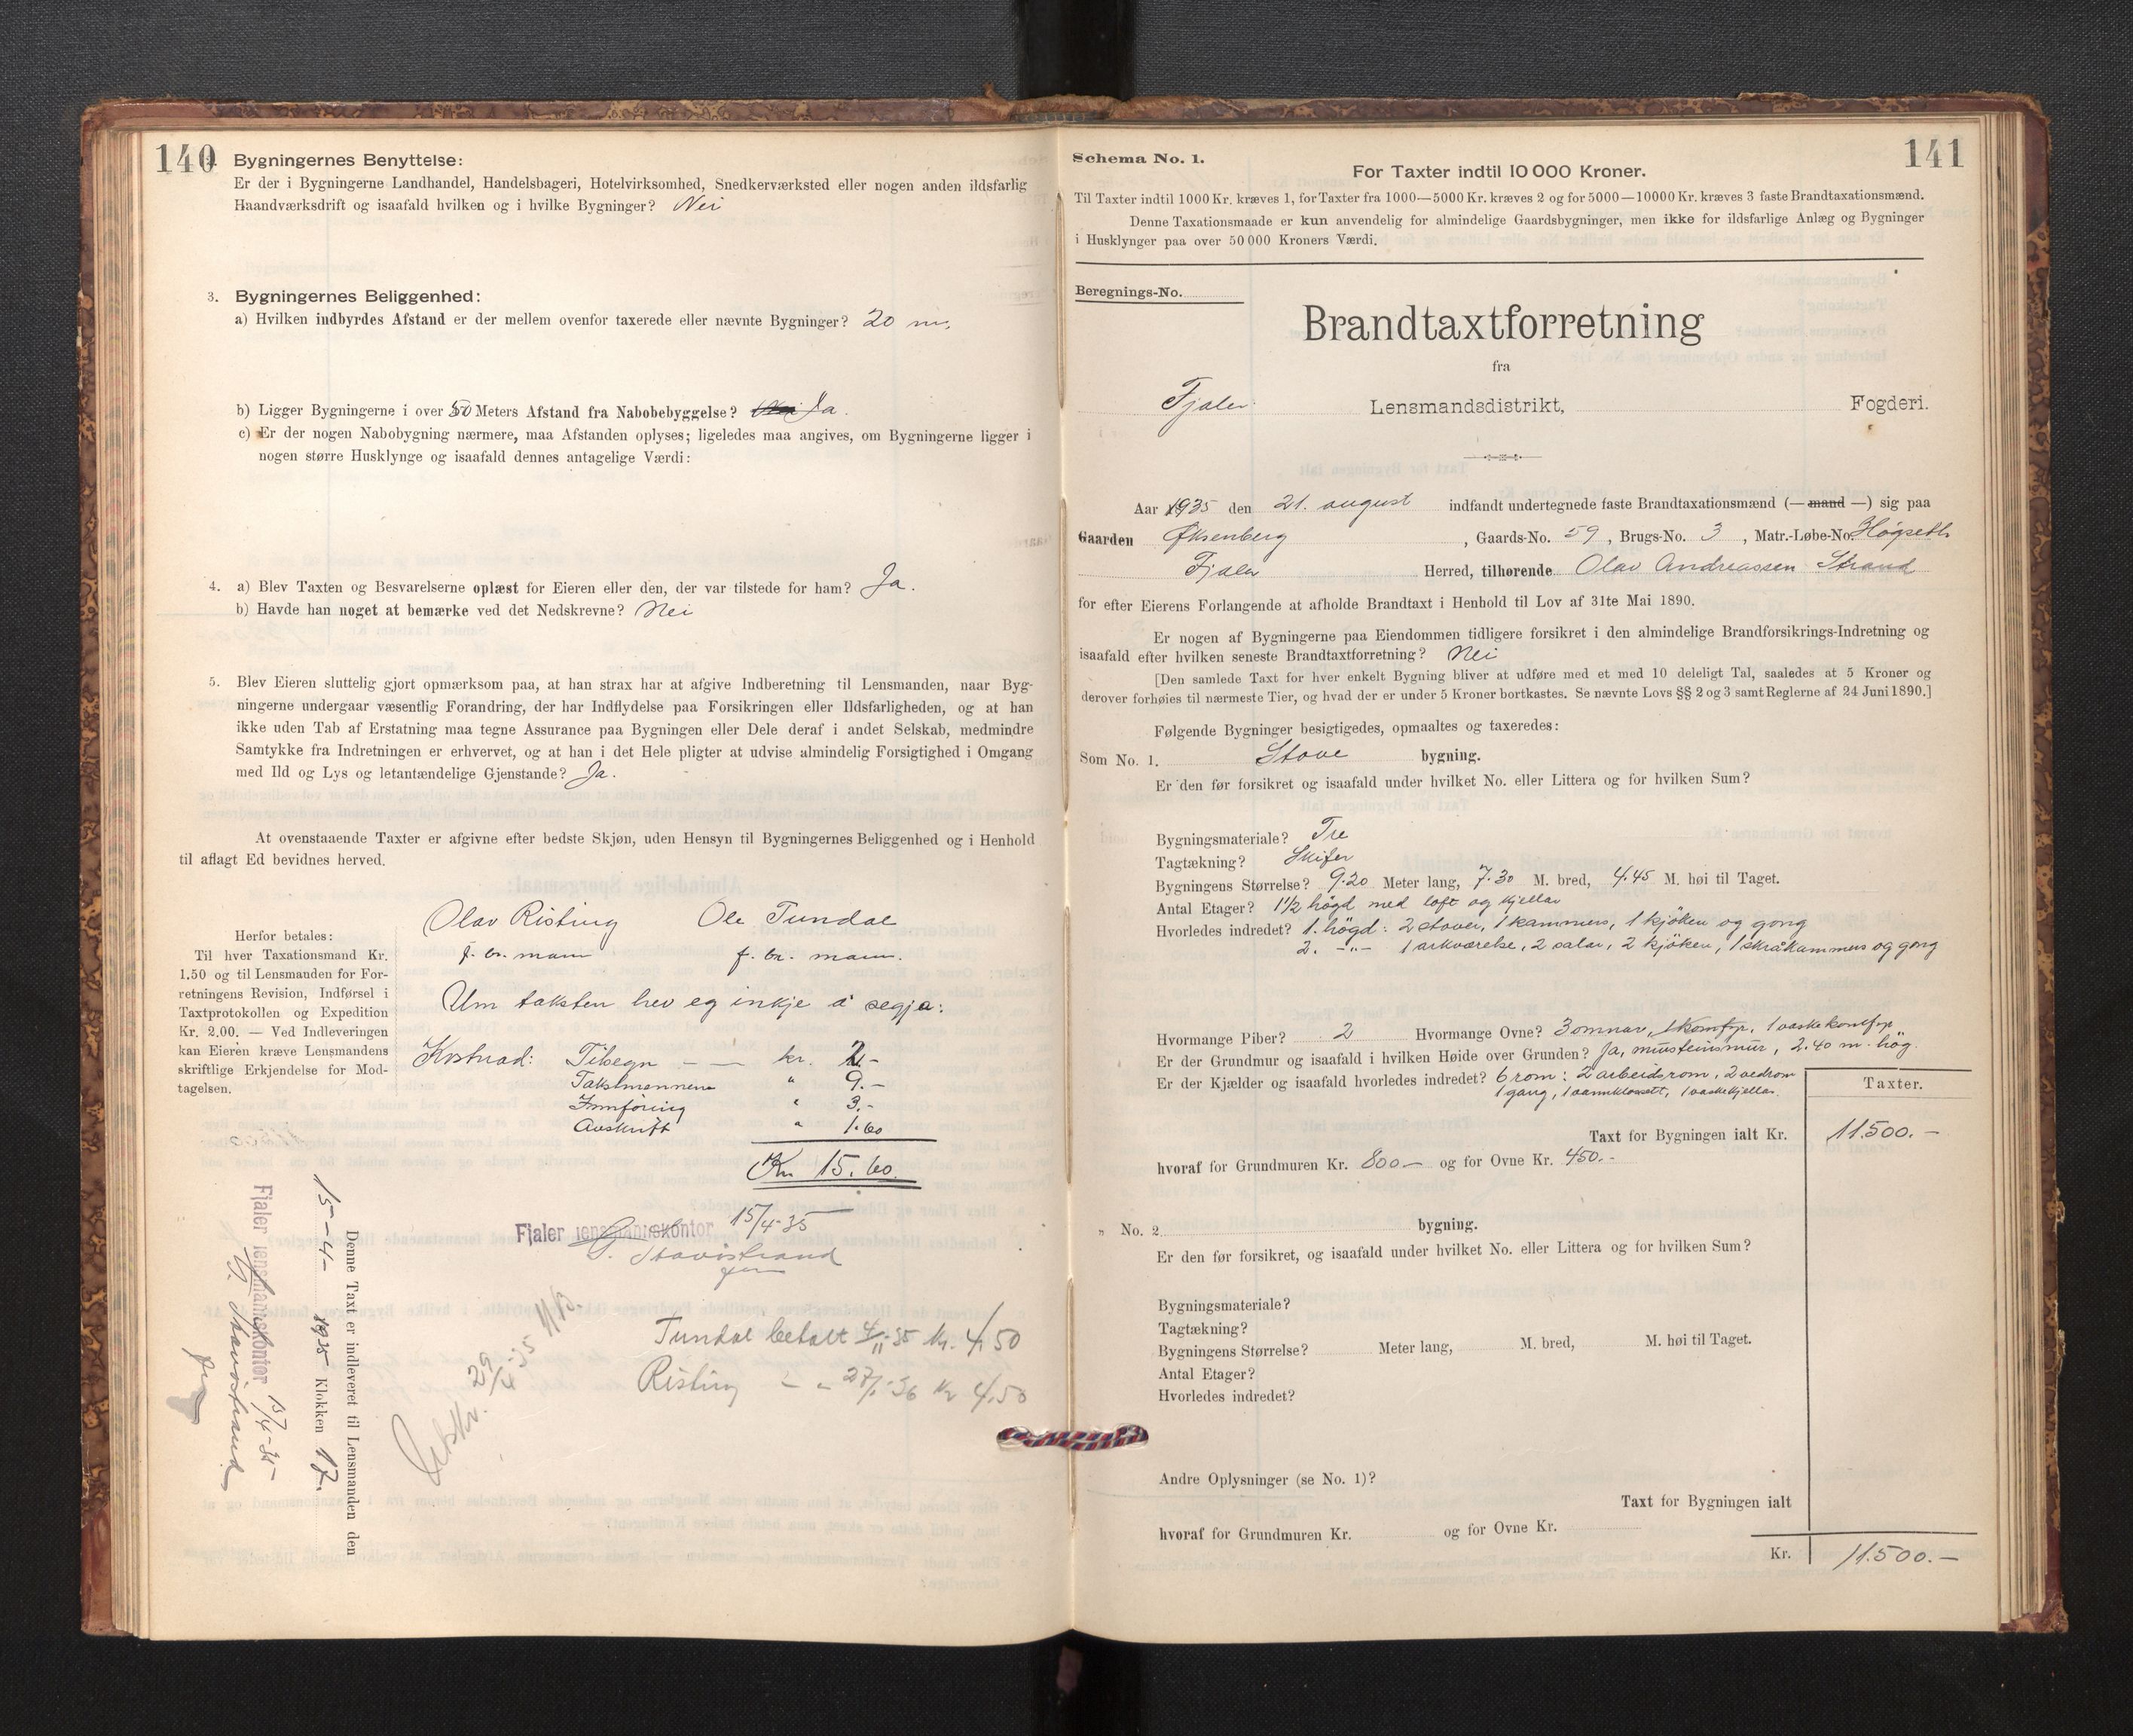 140
2. Bygningernes Benyttelse:
Er der i Bygningerne Landhandel, Handelsbageri, Hotelvirksomhed, Snedkerværksted eller nogen anden ildsfarlig
Haandværksdrift og isaafald hvilken og i hvilke Bygninger? Nei
3. Bygningernes Beliggenhed:
a) Hvilken indbyrdes Afstand er der mellem ovenfor taxerede eller nævnte Bygninger? 20 m.
b) Ligger Bygningerne i over 50 Meters Afstand fra Nabobebyggelse? Nei Ja.
c) Er der nogen Nabobygning nærmere, maa Afstanden oplyses; ligeledes maa angives, om Bygningerne ligger i
nogen større Husklynge og isaafald dennes antagelige Værdi:
4. a) Blev Taxten og Besvarelserne oplæst for Eieren eller den, der var tilstede for ham? Ja.
b) Havde han noget at bemærke ved det Nedskrevne? Nei
5. Blev Eieren sluttelig gjort opmærksom paa, at han strax har at afgive Indberetning til Lensmanden, naar Byg-
ningerne undergaar væsentlig Forandring, der har Indflydelse paa Forsikringen eller Ildsfarligheden, og at han
ikke uden Tab af Erstatning maa tegne Assurance paa Bygningen eller Dele deraf i andet Selskab, medmindre
Samtykke fra Indretningen er erhvervet, og at han i det Hele pligter at udvise almindelig Forsigtighed i Omgang
med Ild og Lys og letantændelige Gjenstande? Ja.
At ovenstaaende Taxter er afgivne efter bedste Skjøn, uden Hensyn til Bygningernes Beliggenhed og i Henhold
til aflagt Ed bevidnes herved.
Olav Risting Ole Tundal
f. br. mann f. br. mann.
Herfor betales:
Til hver Taxationsmand Kr.
1.50 og til Lensmanden for For-
retningens Revision, Indførsel i
Taxtprotokollen og Expedition
Kr. 2.00. — Ved Indleveringen
kan Eieren kræve Lensmandens
skriftlige Erkjendelse for Mod-
tagelsen.
Um taksten hev eg inkje å segja:
Kostnad: Tilsegn — — kr. 2.-
Takstmennene " 9.-
Innføring " 3.-
Avskrift " 1.60
Kr 15.60
Fjaler lensmannskontor 15/4-35
Stavøstrand
Denne Taxt er indleveret til Lensmanden den
15-4- 1935 Klokken 17.
Fjaler lensmannskontor 15/4-35
Stavøstrand
Tundal betalt 4/11-35 kr. 4,50
Risting - " 27/1-36 kr 4,50
141
Schema No. 1.
For Taxter indtil 10 000 Kroner.
Til Taxter indtil 1000 Kr. kræves 1, for Taxter fra 1000—5000 Kr. kræves 2 og for 5000—10000 Kr. kræves 3 faste Brandtaxationsmænd.
Denne Taxationsmaade er kun anvendelig for almindelige Gaardsbygninger, men ikke for ildsfarlige Anlæg og Bygninger
i Husklynger paa over 50 000 Kroners Værdi.
Beregnings-No.
Brandtaxtforretning
fra
Fjaler Lensmandsdistrikt, Fogderi.
Aar 1935 den 21. august indfandt undertegnede faste Brandtaxationsmænd (— mand —) sig paa
Gaarden Øksenberg, Gaards-No. 59, Brugs-No. 3, Matr.-Løbe-No. Høgseth
Fjaler Herred, tilhørende Olav Andreassen Strand
for efter Eierens Forlangende at afholde Brandtaxt i Henhold til Lov af 31te Mai 1890.
Er nogen af Bygningerne paa Eiendommen tidligere forsikret i den almindelige Brandforsikrings-Indretning og
isaafald efter hvilken seneste Brandtaxtforretning? Nei
[Den samlede Taxt for hver enkelt Bygning bliver at udføre med et med 10 deleligt Tal, saaledes at 5 Kroner og
derover forhøies til nærmeste Tier, og hvad der er under 5 Kroner bortkastes. Se nævnte Lovs §§ 2 og 3 samt Reglerne af 24 Juni 1890.]
Følgende Bygninger besigtigedes, opmaaltes og taxeredes:
Som No. 1. Stove bygning.
Er den før forsikret og isaafald under hvilket No. eller Littera og for hvilken Sum?
Bygningsmateriale? Tre
Tagtækning? Skifer
Bygningens Størrelse? 9.20 Meter lang, 7.30 M. bred, 4.45 M. høi til Taget.
Antal Etager? 1½ høgd med loft og kjellar
Hvorledes indredet? 1. høgd: 2 stover, 1 kammers, 1 kjøken og gong
2. -"- 1 arkværelse, 2 salar, 2 kjøken, 1 skråkammers og gong
Hvormange Piber? 2 Hvormange Ovne? 3 omnar, 1 komfyr, 1 vaskekomfyr
Er der Grundmur og isaafald i hvilken Høide over Grunden? Ja, mursteinsmur, 2.40 m. høg.
Er der Kjælder og isaafald hvorledes indredet? 6 rom: 2 arbeidsrom, 2 vedrom
1 gang, 1 vannklosett, 1 vaskekjellar.
Taxter.
Taxt for Bygningen ialt Kr. 11.500.—
hvoraf for Grundmuren Kr. 800— og for Ovne Kr. 450.-
„ No. 2 bygning.
Er den før forsikret, og isaafald under hvilket No. eller Littera og for hvilken Sum?
Bygningsmateriale?
Tagtækning?
Bygningens Størrelse? Meter lang, M. bred, M. høi til Taget.
Antal Etager?
Hvorledes indredet?
Andre Oplysninger (se No. 1)?
Taxt for Bygningen ialt
hvoraf for Grundmuren Kr. og for Ovne Kr.
Kr. 11.500.—